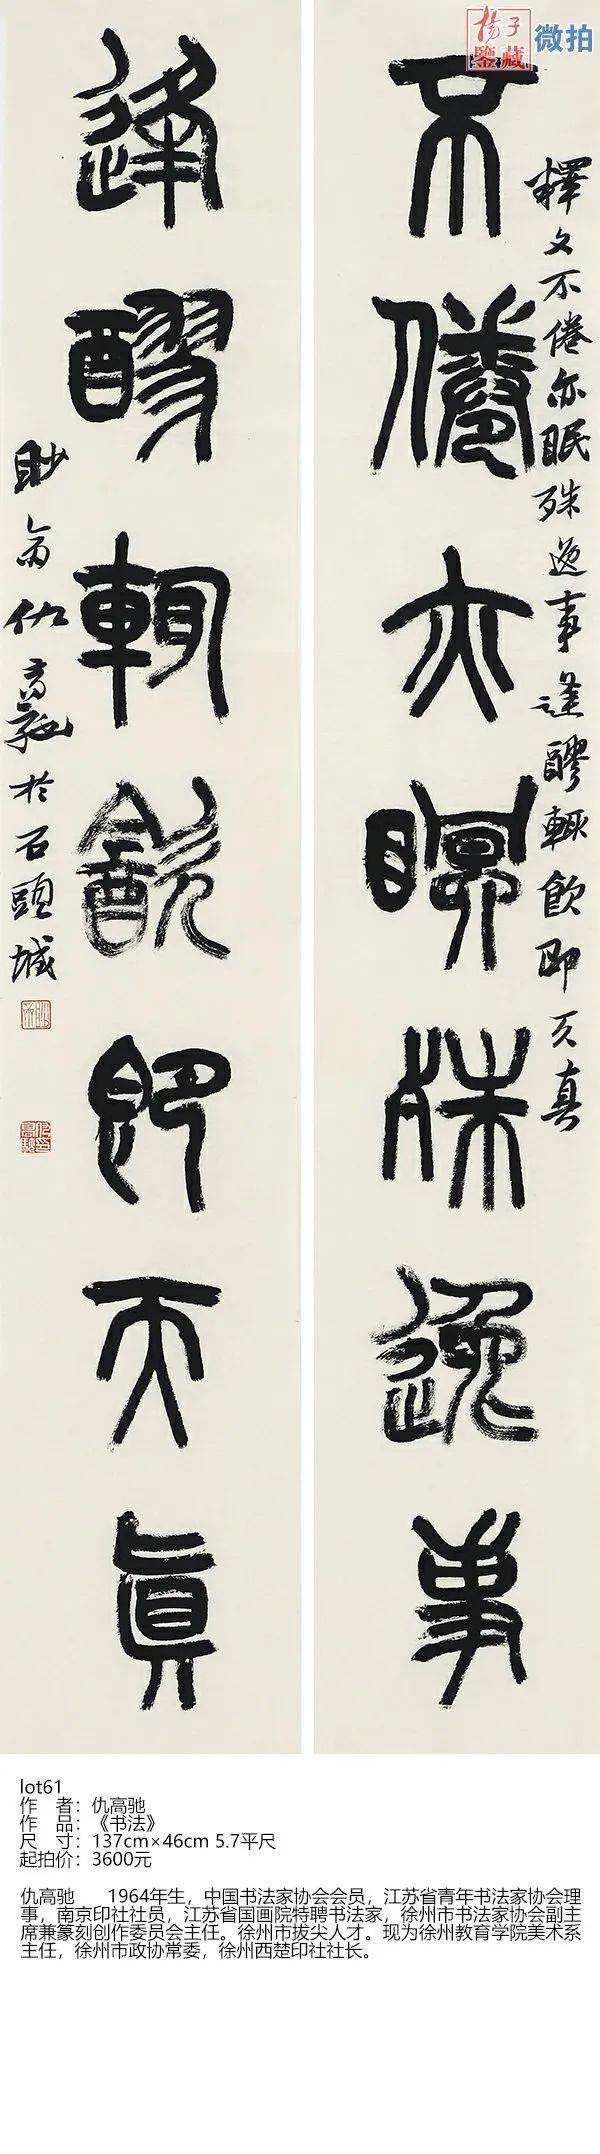 杨子
鉴藏
微拍
不倦亦眠殊逸事
释文不倦亦眠殊逸事逢醪辄饮即天真
逢醪辄饮即天真
仇高驰於石頭城
lot61
作　者：仇高驰
作　品：《书法》
尺　寸：137cm×46cm 5.7平尺
起拍价：3600元
仇高驰　　1964年生，中国书法家协会会员，江苏省青年书法家协会理
事，南京印社社员，江苏省国画院特聘书法家，徐州市书法家协会副主
席兼篆刻创作委员会主任。徐州市拔尖人才。现为徐州教育学院美术系
主任，徐州市政协常委，徐州西楚印社社长。